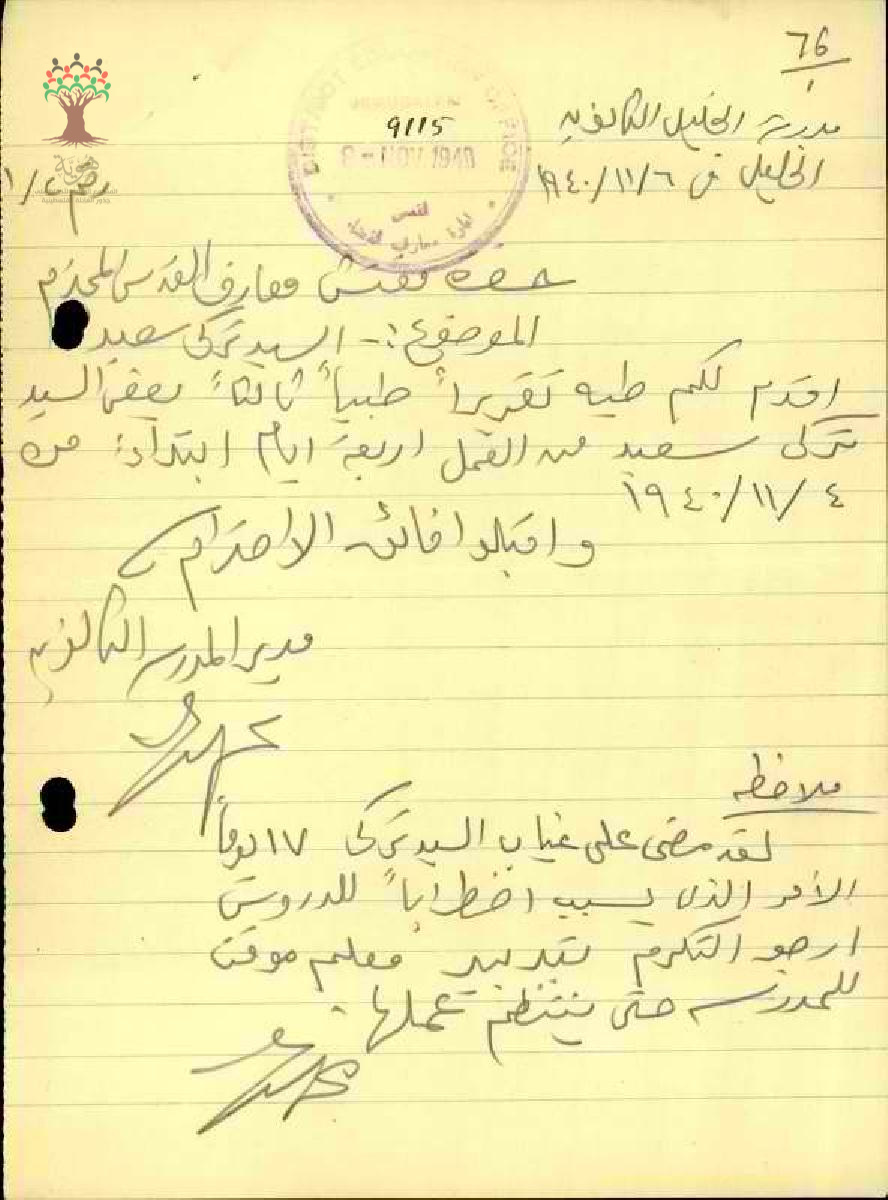 76
١
مدرسة الخليل الثانوية
الخليل في ٦/١١/١٩٤٠
رقم ٢/١
DISTRICT EDUCATION OFFICE
JERUSALEM
9115
8 - NOV 1940
القدس
ادارة معارف لواء
هوية
حضرة مفتش معارف القدس المحترم
الموضوع :- السيد تركي سعيد
اقدم لكم طيه تقريراً طبياً ثالثاً يعفي السيد
تركي سعيد من العمل اربعة ايام ابتداءً من
٤/١١/١٩٤٠
واقبلوا فائق الاحترام
مدير المدرسة الثانوية
ملاحظه
لقد مضى على غياب السيد تركي ١٧ يوماً
الأمر الذي يسبب اضطراباً للدروس
ارجو التكرم بتدبير معلم موقت
للمدرسة حتى ينتظم عملها.